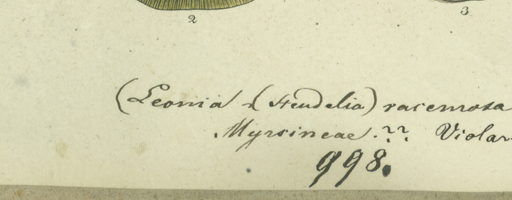 2 3
(Leonia & (Steudelia) racemosa
Myrsineae. ?? Violar
998.